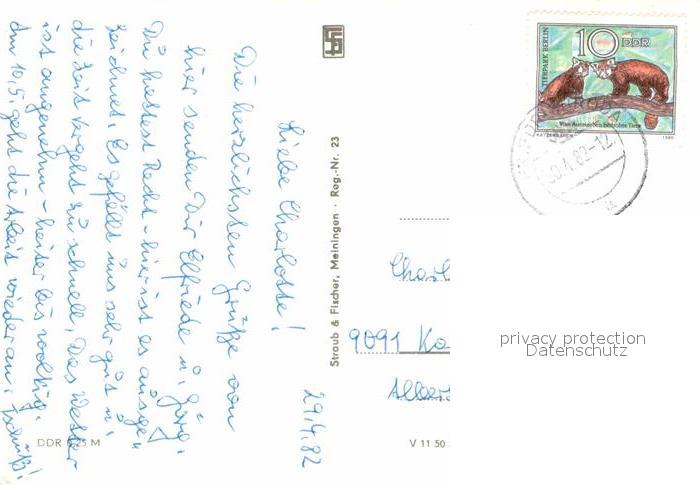 29.4.82
Liebe Charlotte!
Die herzlichsten Grüße von
hier senden Dir Elfriede u. Jürg.
Du hattest Recht - hier ist es ausge-
zeichnet. Es gefällt uns sehr gut u.
die Zeit vergeht zu schnell. Das Wetter
ist angenehm - heiter bis wolkig.
Am 10.5. geht die Arbeit wieder an. Tschüß!
DDR 0,25 M
Straub & Fischer, Meiningen · Reg.-Nr. 23
V 11 50
TIERPARK BERLIN
10 DDR
Vom Aussterben bedrohte Tiere
1980
.4.82-12
Charl
9091 Ka
Albert
privacy protection
Datenschutz